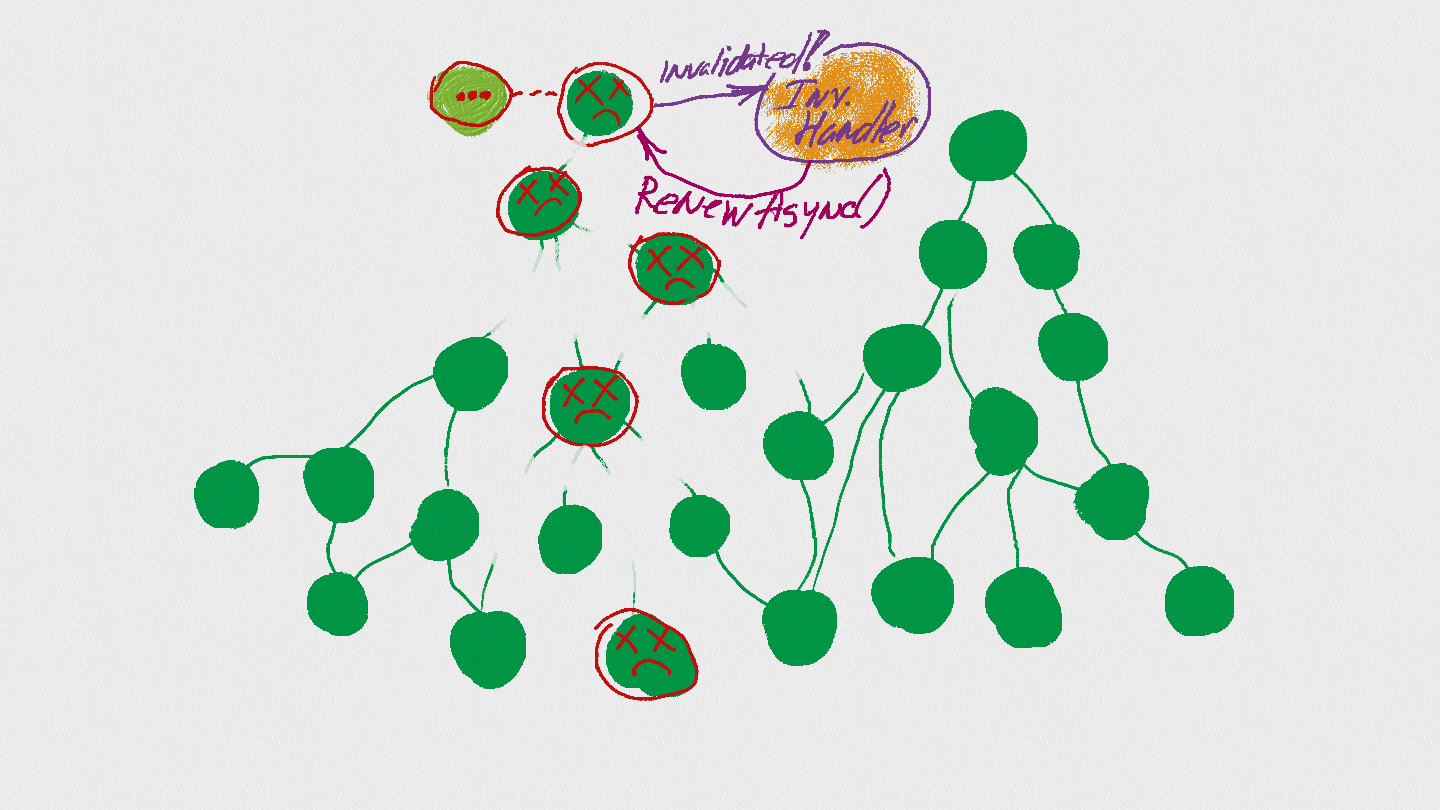 Invalidated!
...
Inv.
Handler
RenewAsync()